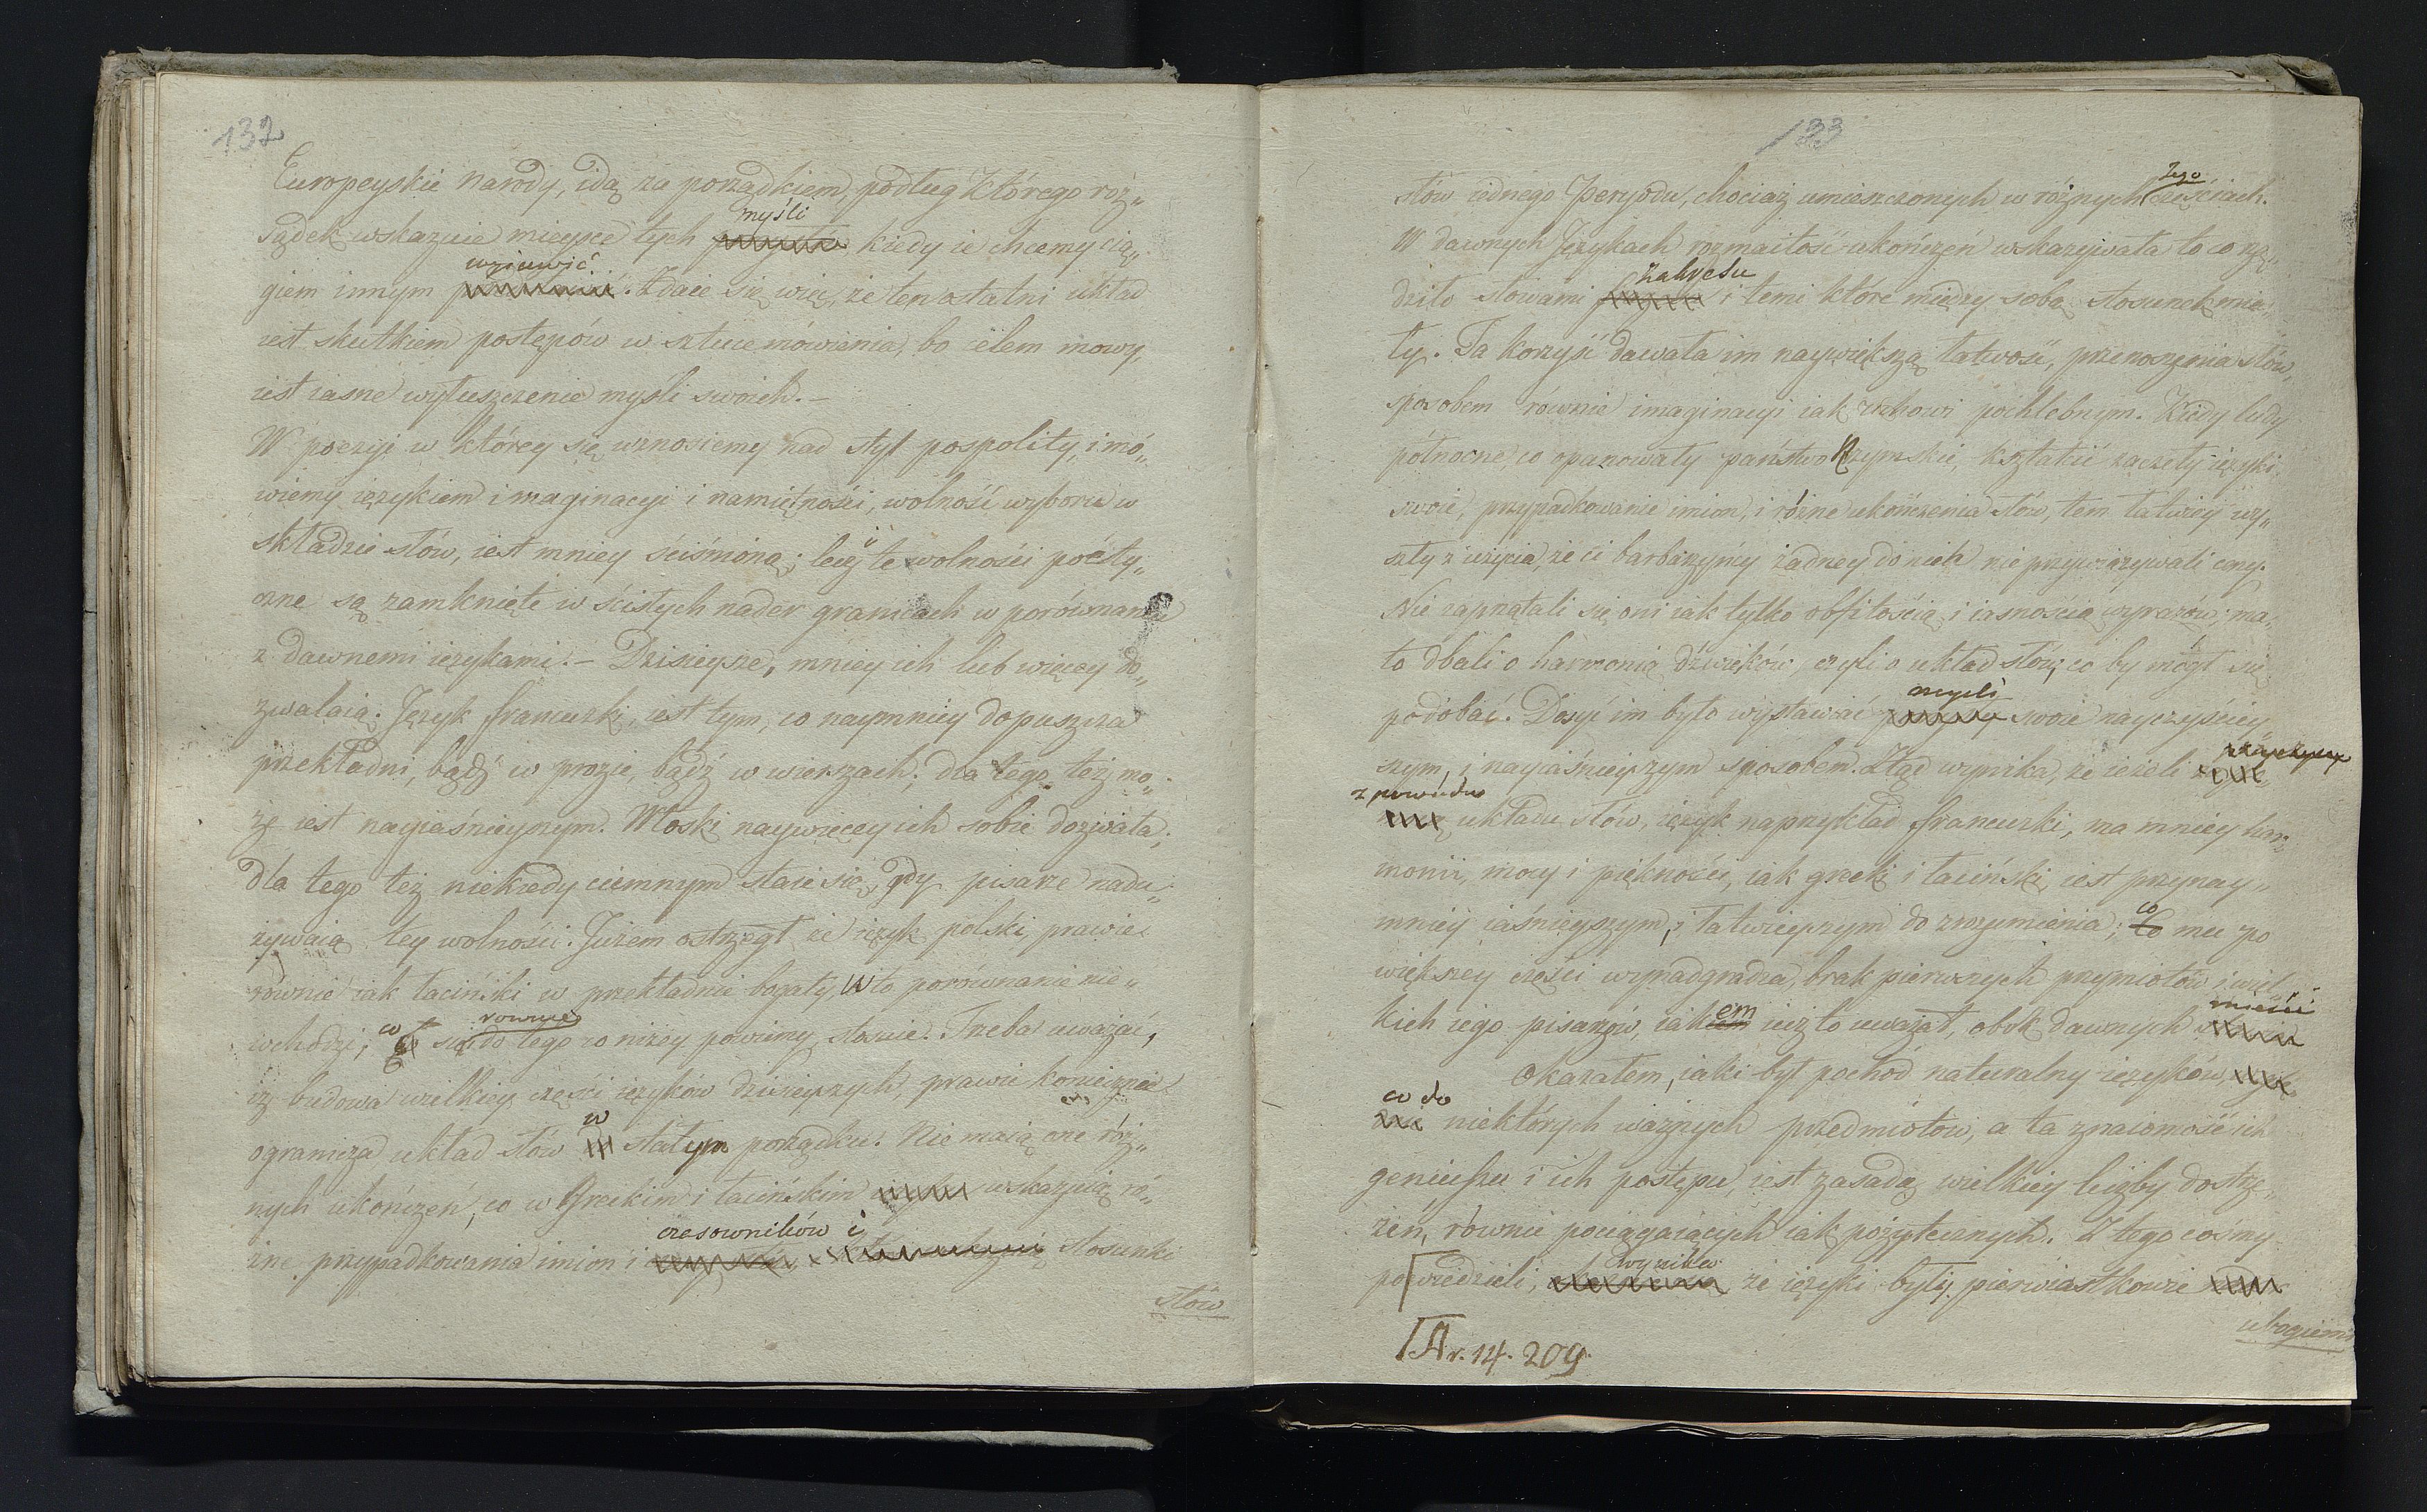 132
Europeyskie narody, idą za porządkiem, podług którego roz„
myśli
sądek wskazuie mieysce tych kiedy ie chcemy cią„
uziawić
giem innym . Zdaie się więc, że ten ostatni układ
iest skutkiem postępów w sztuce mówienia, bo celem mowy,
iest iasne wyłuszczenie myśli swoich. –
W poezyi w którey się wznosiemy nad styl pospolity, i mó„
wiemy ięzykiem imaginacyi i namiętności, wolność wyboru w
składzie słów, iest mniey ściśnioną; lecz te wolności poety„
czne są zamknięte w ścisłych nader granicach w porównaniu
z dawnemi ięzykami. – Dzisieysze, mniey ich lub więcey do„
zwalaią. Język francuzki, iest tym, co naymniey dopuszcza
przekładni, bądź w prozie, bądź w wierszach; dla tego też mo„
że iest nayiaśnieyszym. Włoski naywięcey ich sobie dozwala;
dla tego też niekiedy ciemnym staie się, gdy pisarze nadu„
żywaią tey wolności. Jużem ostrzegł że ięzyk polski prawie
równie iak łaciński w przekładnie bogaty, w to porównanie nie„
co równie
wchodzi; się do tego co niżey powiemy stosuie. Trzeba uważać,
iż budowa wielkiey części ięzyków dzisieyszych, prawie koniecznie
w
ogranicza układ słów stałym porządku. Nie maią one róż„
nych ukończen, co w Greckim i łacińskim wskazuią ró„
czasowników i
żne przypadkowania imion i stosunki
słów
133
tego
słów iednego Peryodu, chociaż umieszczonych w różnych częściach.
W dawnych Językach rozmaitość ukończeń wskazywała to co rzą„
zakresu
dziło słowami i temi które między sobą stosunek mia„
ły. Ta korzyść dawała im naywiększą łatwość, przenoszenia słów,
sposobem równie imaginacyi iak uchowi pochlebnym. Kiedy ludy
północne, co opanowały państwo Rzymskie, kształcić zaczęły ięzyki
swoie, przypadkowanie imion, i różne ukończenia słów, tem łatwiey wy„
szły z użycia, że ci barbarzyńcy żadney do nich nie przywiązywali ceny.
Nie zaprzątali się oni iak tylko obfitością i iasnością wyrazów; ma„
ło dbali o harmonią dźwięków, czyli o układ słów, co by mógł się
myśli
podobać. Dosyć im było wystawiać swoie nayczyściey„
szym, i nayiaśnieyszym sposobem. Ztąd wynika, że ieżeli
z powodu
układu słów, ięzyk naprzykład francuzki, ma mniey har„
monii, mocy i piękności, iak grecki i łaciński, iest przynay„
co
mniey iaśnieyszym, i łatwieyszym do zrozumienia; mu po
większey części wynadgradza, brak pierwszych przymiotów i wiel„
em mieści
kich iego pisarzów, iak iuż to uważał, obok dawnych
Okazałem, iaki był pochód naturalny ięzyków,
co do
niektórych ważnych przedmiotów, a ta znaiomość ich
geniuszu i ich postępu, iest zasadą wielkiey liczby dostrze„
żeń, równie pociągaiących iak pożytecznych. Z tego cośmy
wynikło
powiedzieli, że ięzyki były pierwiastkowie
ubogiemi
Ar. 14. 209.